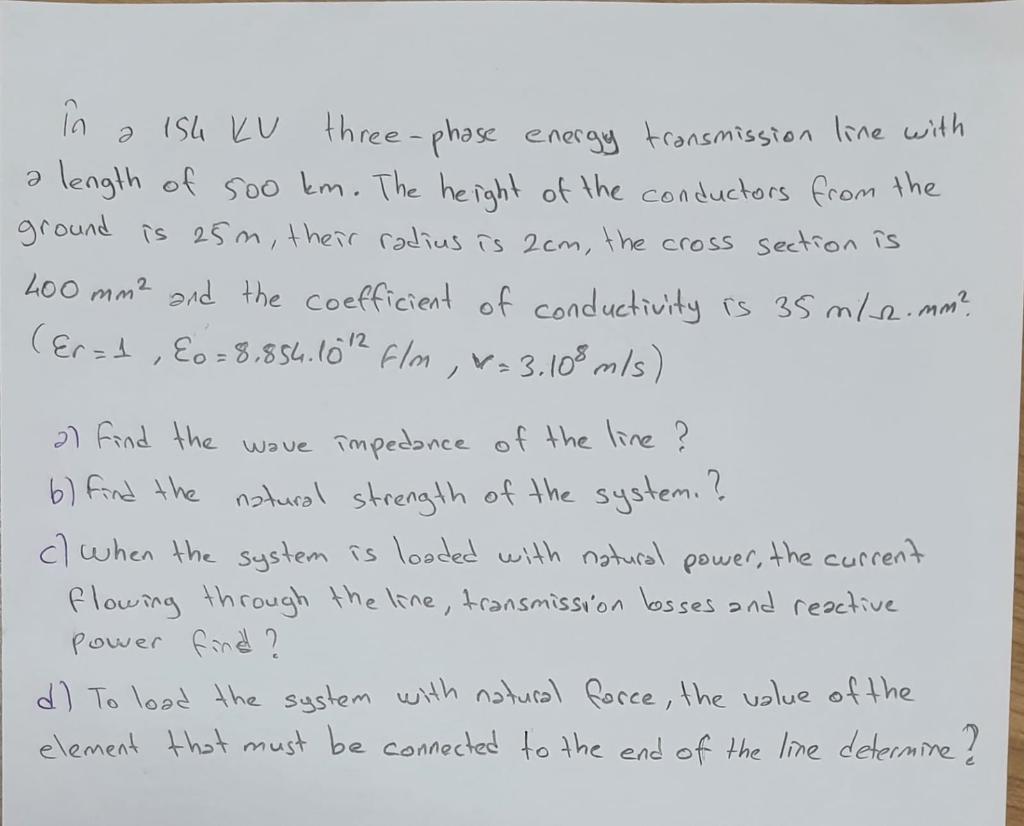 in a 154 kV three-phase energy transmission line with
a length of 500 km. The height of the conductors from the
ground is 25m, their radius is 2cm, the cross section is
400 mm² and the coefficient of conductivity is 35 m/Ω.mm².
(Er=1, Eo=8.854.10^-12 F/m, v=3.10⁸ m/s)
a) Find the wave impedance of the line?
b) find the natural strength of the system.?
c) When the system is loaded with natural power, the current
flowing through the line, transmission losses and reactive
power find?
d) To load the system with natural force, the value of the
element that must be connected to the end of the line determine?